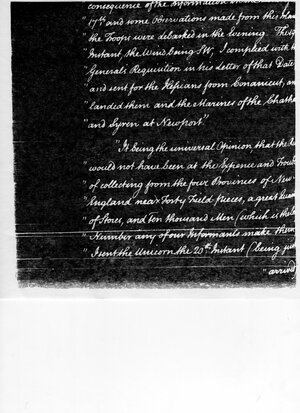 consequence of the Information
" 17th and some Observations made from this
" the Troops were debarked in the evening. The
" Instant, the Wind being SW, I complied with t
" Generals Requisition in his Letter of that Date
" and sent for the Hessians from Conanicut, an
" landed them and the Marines of the Chath
" and Syren at Newport."
" It being the universal Opinion that the
" would not have been at the Expence and Troub
" of collecting from the four Provinces of New
" England near Forty Field Pieces, a great
" of Stores, and ten thousand Men, (which is the
" Number any of our Informants make them
" I sent the Unicorn the 20th Instant (being
" arrived